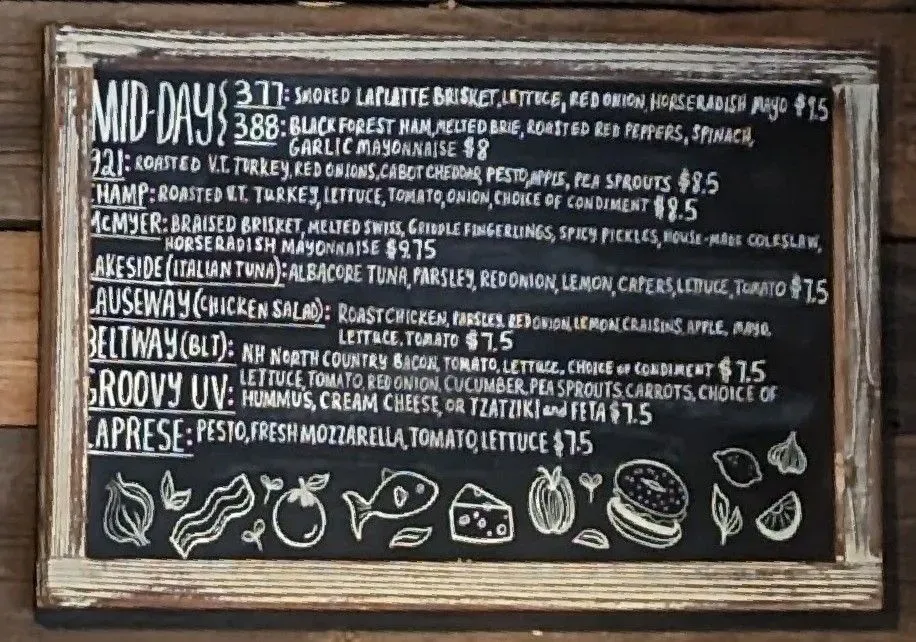 MID-DAY{ 377: SMOKED LAPLATTE BRISKET, LETTUCE, RED ONION, HORSERADISH MAYO $9.5
388: BLACK FOREST HAM, MELTED BRIE, ROASTED RED PEPPERS, SPINACH,
GARLIC MAYONNAISE $8
921: ROASTED V.T. TURKEY, RED ONIONS, CABOT CHEDDAR, PESTO, APPLE, PEA SPROUTS $8.5
CHAMP: ROASTED V.T. TURKEY, LETTUCE, TOMATO, ONION, CHOICE OF CONDIMENT $8.5
MCMYER: BRAISED BRISKET, MELTED SWISS, GRIDDLE FINGERLINGS, SPICY PICKLES, HOUSE-MADE COLESLAW,
HORSERADISH MAYONNAISE $9.75
LAKESIDE (ITALIAN TUNA): ALBACORE TUNA, PARSLEY, RED ONION, LEMON, CAPERS, LETTUCE, TOMATO $7.5
CAUSEWAY (CHICKEN SALAD): ROAST CHICKEN, PARSLEY, RED ONION, LEMON CRAISINS, APPLE, MAYO,
LETTUCE, TOMATO $7.5
BELTWAY (BLT): NH NORTH COUNTRY BACON, TOMATO, LETTUCE, CHOICE OF CONDIMENT $7.5
GROOVY UV: LETTUCE, TOMATO, RED ONION, CUCUMBER, PEA SPROUTS, CARROTS, CHOICE OF
HUMMUS, CREAM CHEESE, OR TZATZIKI and FETA $7.5
CAPRESE: PESTO, FRESH MOZZARELLA, TOMATO, LETTUCE $7.5